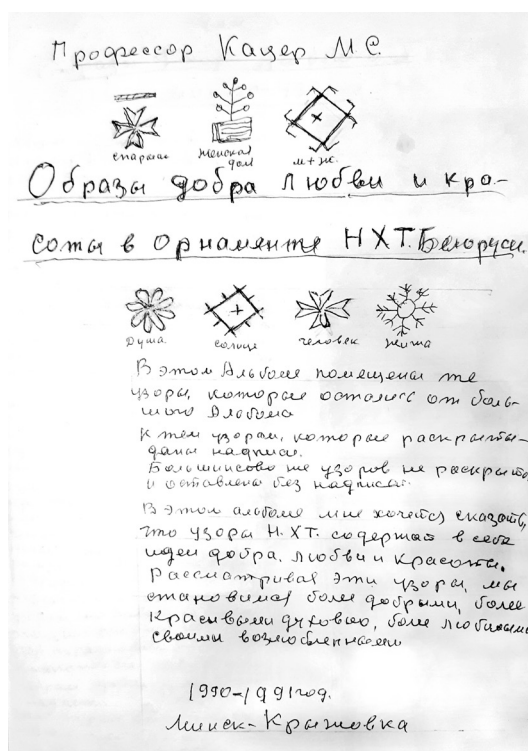 Профессор Кацер М.С.
спарыш женская доля м+ж.
Образы добра любви и кра-
соты в орнаменте НХТ. Белоруси.
Душа солнце человек жыта
В этом Альбоме помещены те
узоры, которые остались от боль-
шого Альбома
К тем узорам, которые раскрыты-
даны надписи.
Большинство же узоров не раскрыто
и оставлены без надписи.
В этом альбоме мне хочется сказать,
что узоры Н.Х.Т. содержат в себе
идеи добра, любви и красоты.
Рассматривая эти узоры, мы
становимся более добрыми, более
красивыми духовно, более любимыми
своими возлюбленными
1990-1991 год.
Минск-Крыжовка